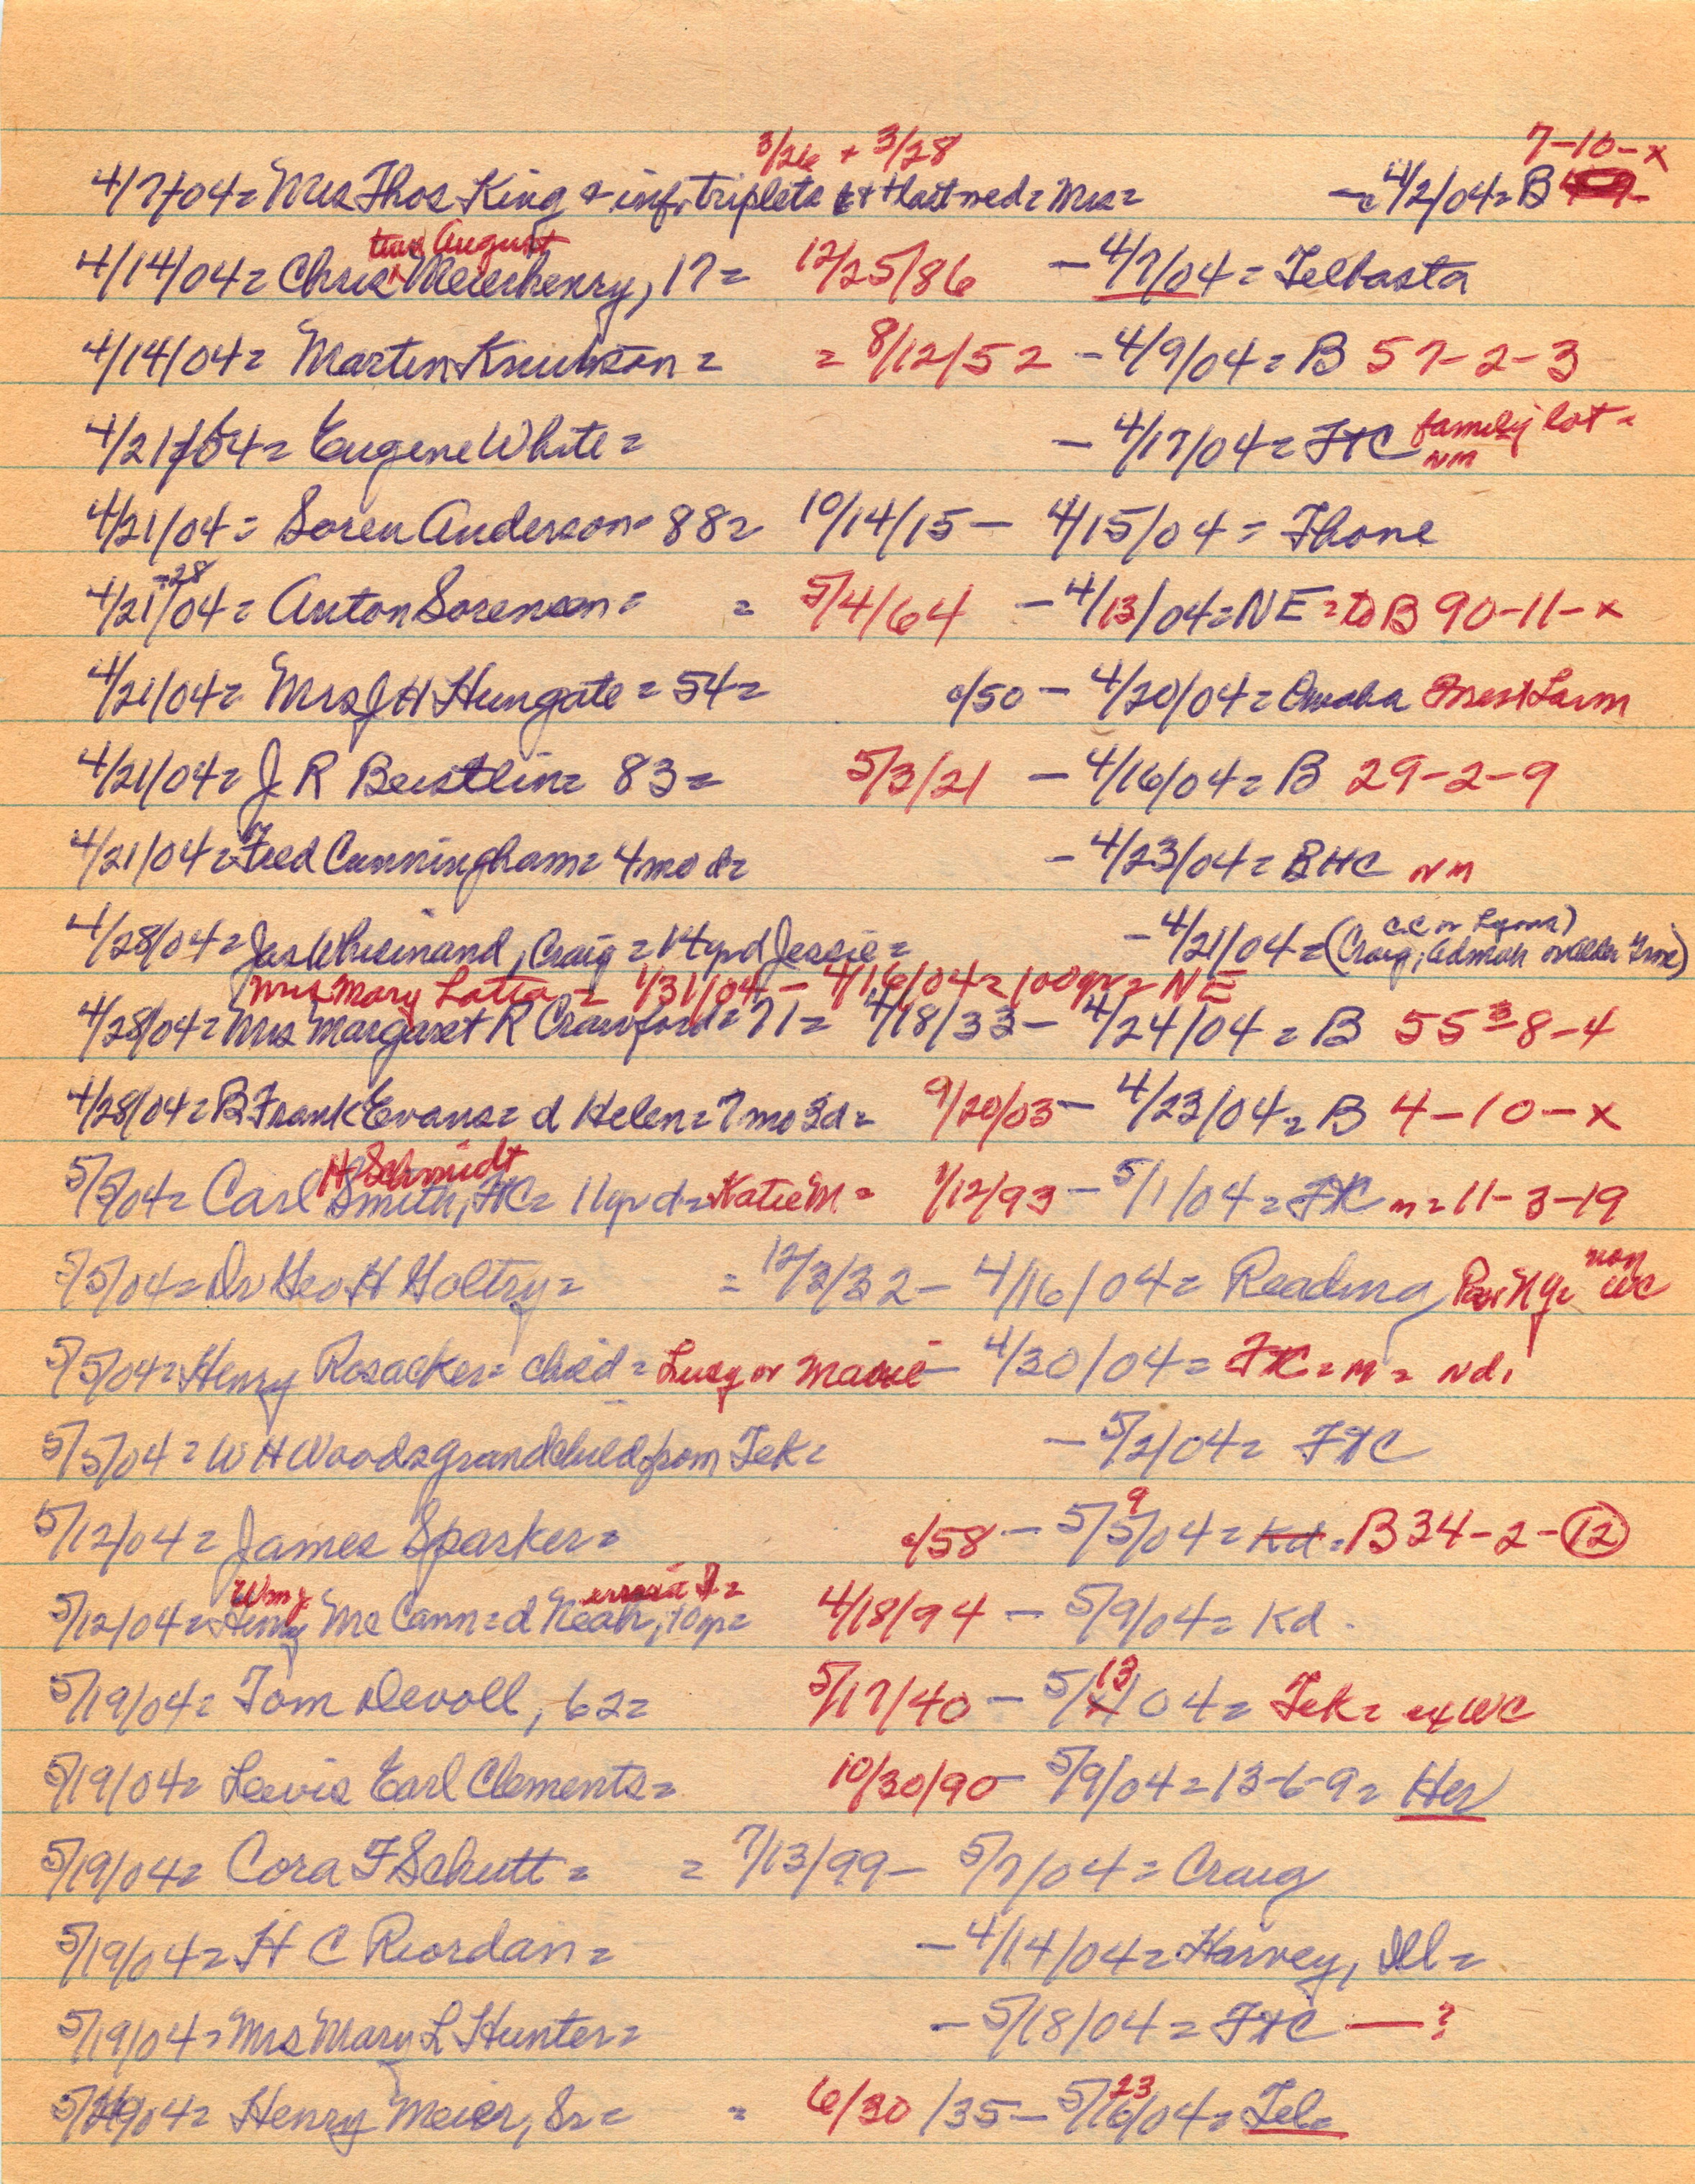 3/26 + 3/28 7-10-x
4/7/04= Mrs Thos King & inf. triplets & + last ned= Mrs= - c4/2/04= B
August
4/14/04= Chris Meierhenry, 17= 12/25/86 - 4/7/04= Telbasta
4/14/04= Marten Knudson= = 8/12/52 - 4/9/04= B 57-2-3
4/21/04= Eugene White= - 4/17/04= FtC family lot=
NM
4/21/04= Soren Anderson= 88= 10/14/15- 4/15/04= Fhone
-28
4/21/04= Anton Sorensen= = 5/4/64 - 4/13/04=NE=to B 90-11-x
4/21/04= Mrs J H Hungate= 54= c/50 - 4/20/04= Omaha Forest Lawn
4/21/04= J R Beistlin= 83= 5/3/21 - 4/16/04= B 29-2-9
4/21/04= Fred Cunningham= 4mo d= - 4/23/04= BHC NM
4/28/04= Jas Whisinand, Craig= 14yr d Jessie= - 4/21/04= (Craig, Admah or Alder Grove)
C.C. or Lyons)
Mrs Mary Latta = 1/31/04 - 4/16/04= 100yr= NE
4/28/04= Mrs Margaret R Crawford= 71= 4/18/33- 4/24/04= B 55=8-4
4/28/04= B Frank Evans= d Helen= 7mo 3d= 9/20/03- 4/23/04= B 4-10-x
H Schmidt
5/5/04= Carl Smith, FtC= 11yr d= Katie M= 1/12/93 - 5/1/04= FtC n=11-3-19
5/5/04= Dr Geo H Holtry= = 12/3/32- 4/16/04= Reading, non WC
5/5/04= Henry Rosacker= child= Lucy or Marie - 4/30/04= FtC= M= Nd.
5/5/04= W H Woods grandchild from Tek= - 5/2/04= FtC
9
5/12/04= James Sparker= c/58 - 5/5/04= Kd= B 34-2-12
Wm J
5/12/04= Henry McCann= d Neah, 10yr= 4/18/94 - 5/9/04= Kd.
13
5/19/04= Tom Devoll, 62= 5/17/40 - 5/ /04= Tek= ex WC
5/19/04= Lewis Earl Clements= 10/30/90- 5/9/04=13-6-9= Her
5/19/04= Cora F Schutt= = 7/13/99- 5/7/04= Craig
5/19/04= H C Reordan= - 4/14/04= Harvey, Ill=
5/19/04= Mrs Mary L Hunter= - 5/18/04= FtC - ?
23
5/ /04= Henry Meier, Sr= = 6/30/35- 5/16/04= Tel=